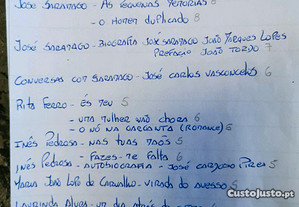 José Saramago - As Pequenas Memórias 8
- O Homem Duplicado 8
José Saramago - Biografia José Saramago João Marques Lopes
Prefácio João Tordo 7
Conversas com Saramago - José Carlos Vasconcelos 6
Rita Ferro - És Meu 5
- Uma Mulher não chora 6
- O nó na garganta (Romance) 6
Inês Pedrosa - Nas tuas mãos 5
- Fazes-me falta 6
Inês Pedrosa - Autobiografia - José Cardoso Pires 5
Maria João Lopo de Carvalho - Virada do avesso 5
Laurinda Alves - Um dia atrás do
CustoJusto.pt